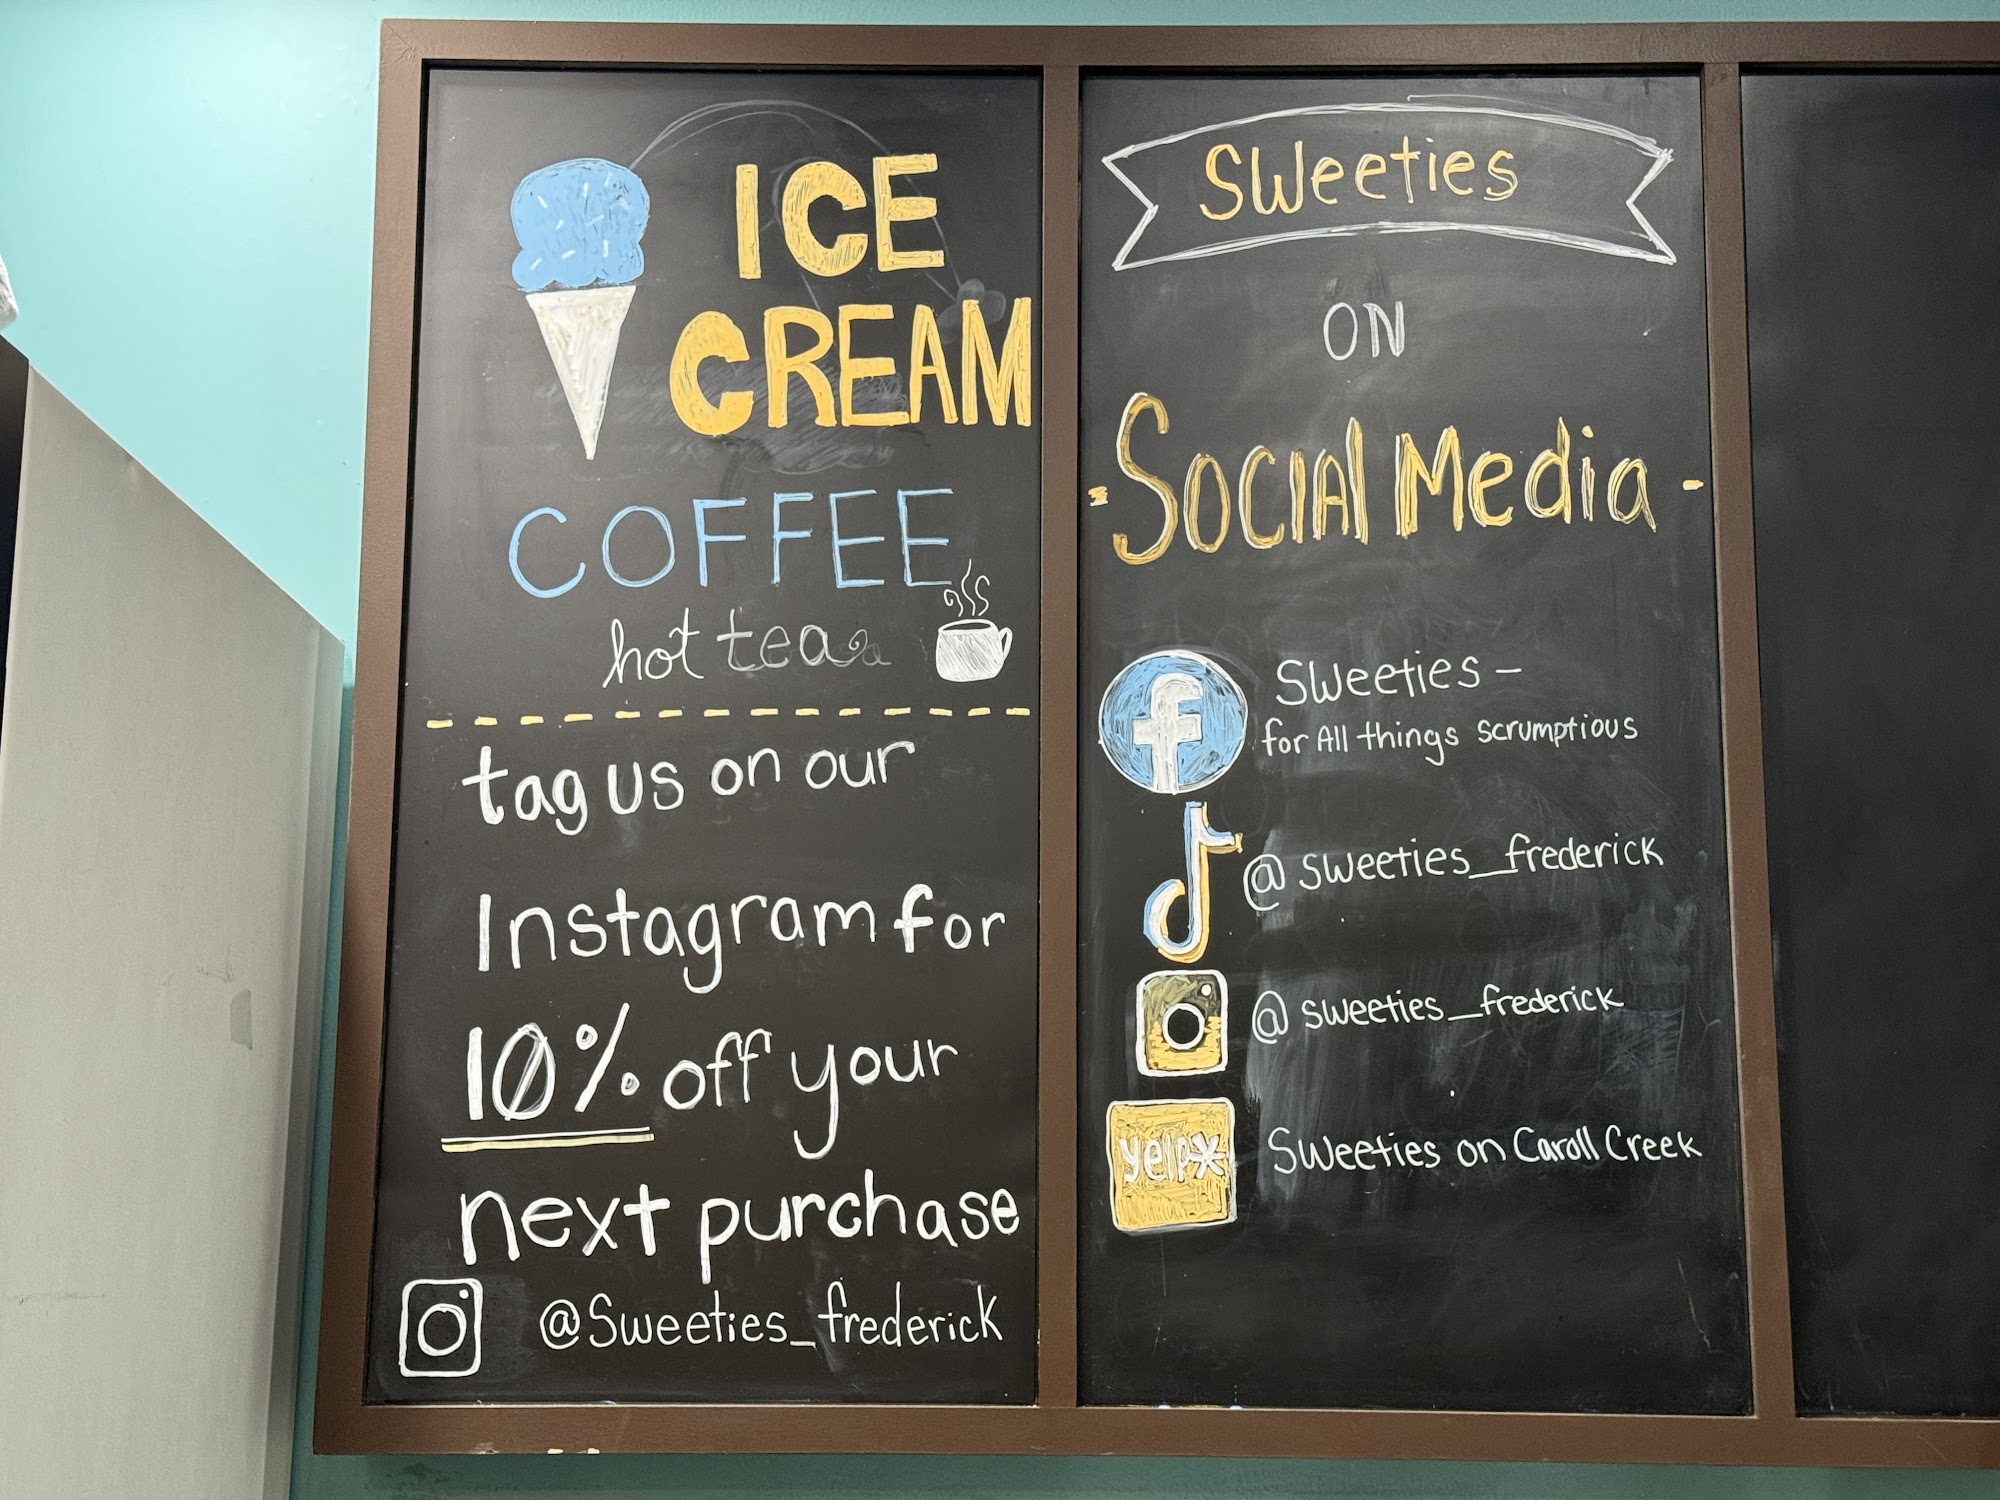 ICE
CREAM
COFFEE
hot tea
tag us on our
Instagram for
10% off your
next purchase
@Sweeties_frederick
Sweeties
ON
-Social Media-
f
Sweeties -
for All things scrumptious
@sweeties_frederick
@sweeties_frederick
yelp
Sweeties on Caroll Creek